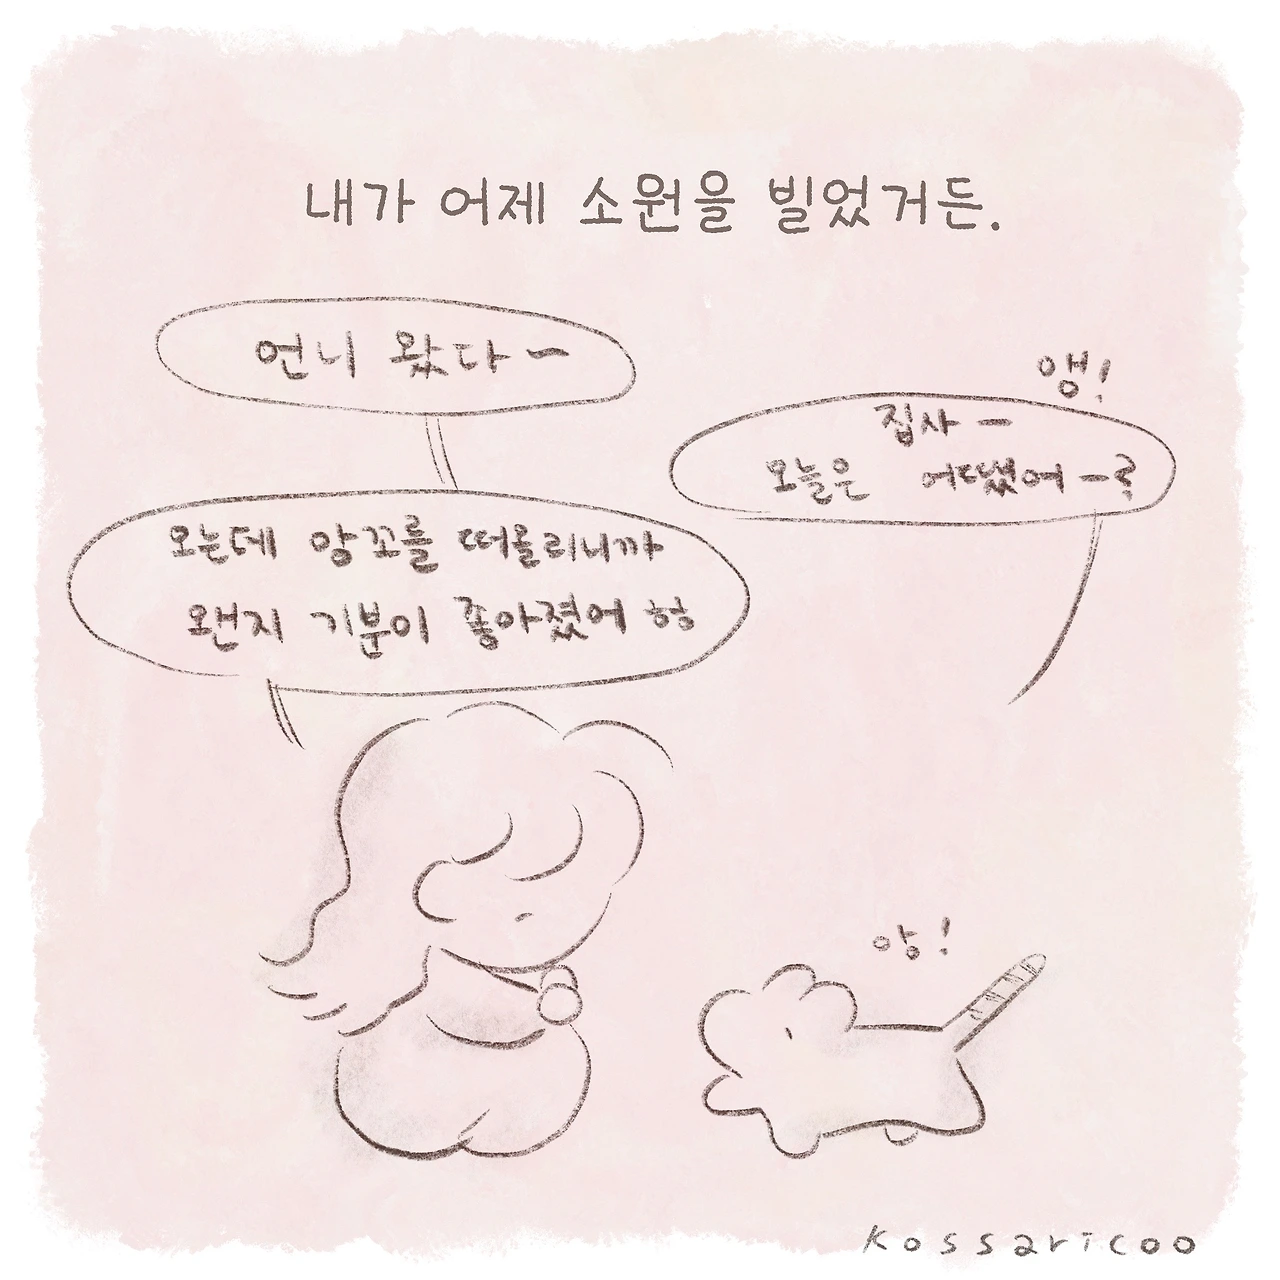 내가 어제 소원을 빌었거든.
언니 왔다~
앵!
집사 ー
오늘은 어땠어 ー?
오는데 앙꼬를 떠올리니까
왠지 기분이 좋아졌어 헝
앙!
kossaricoo